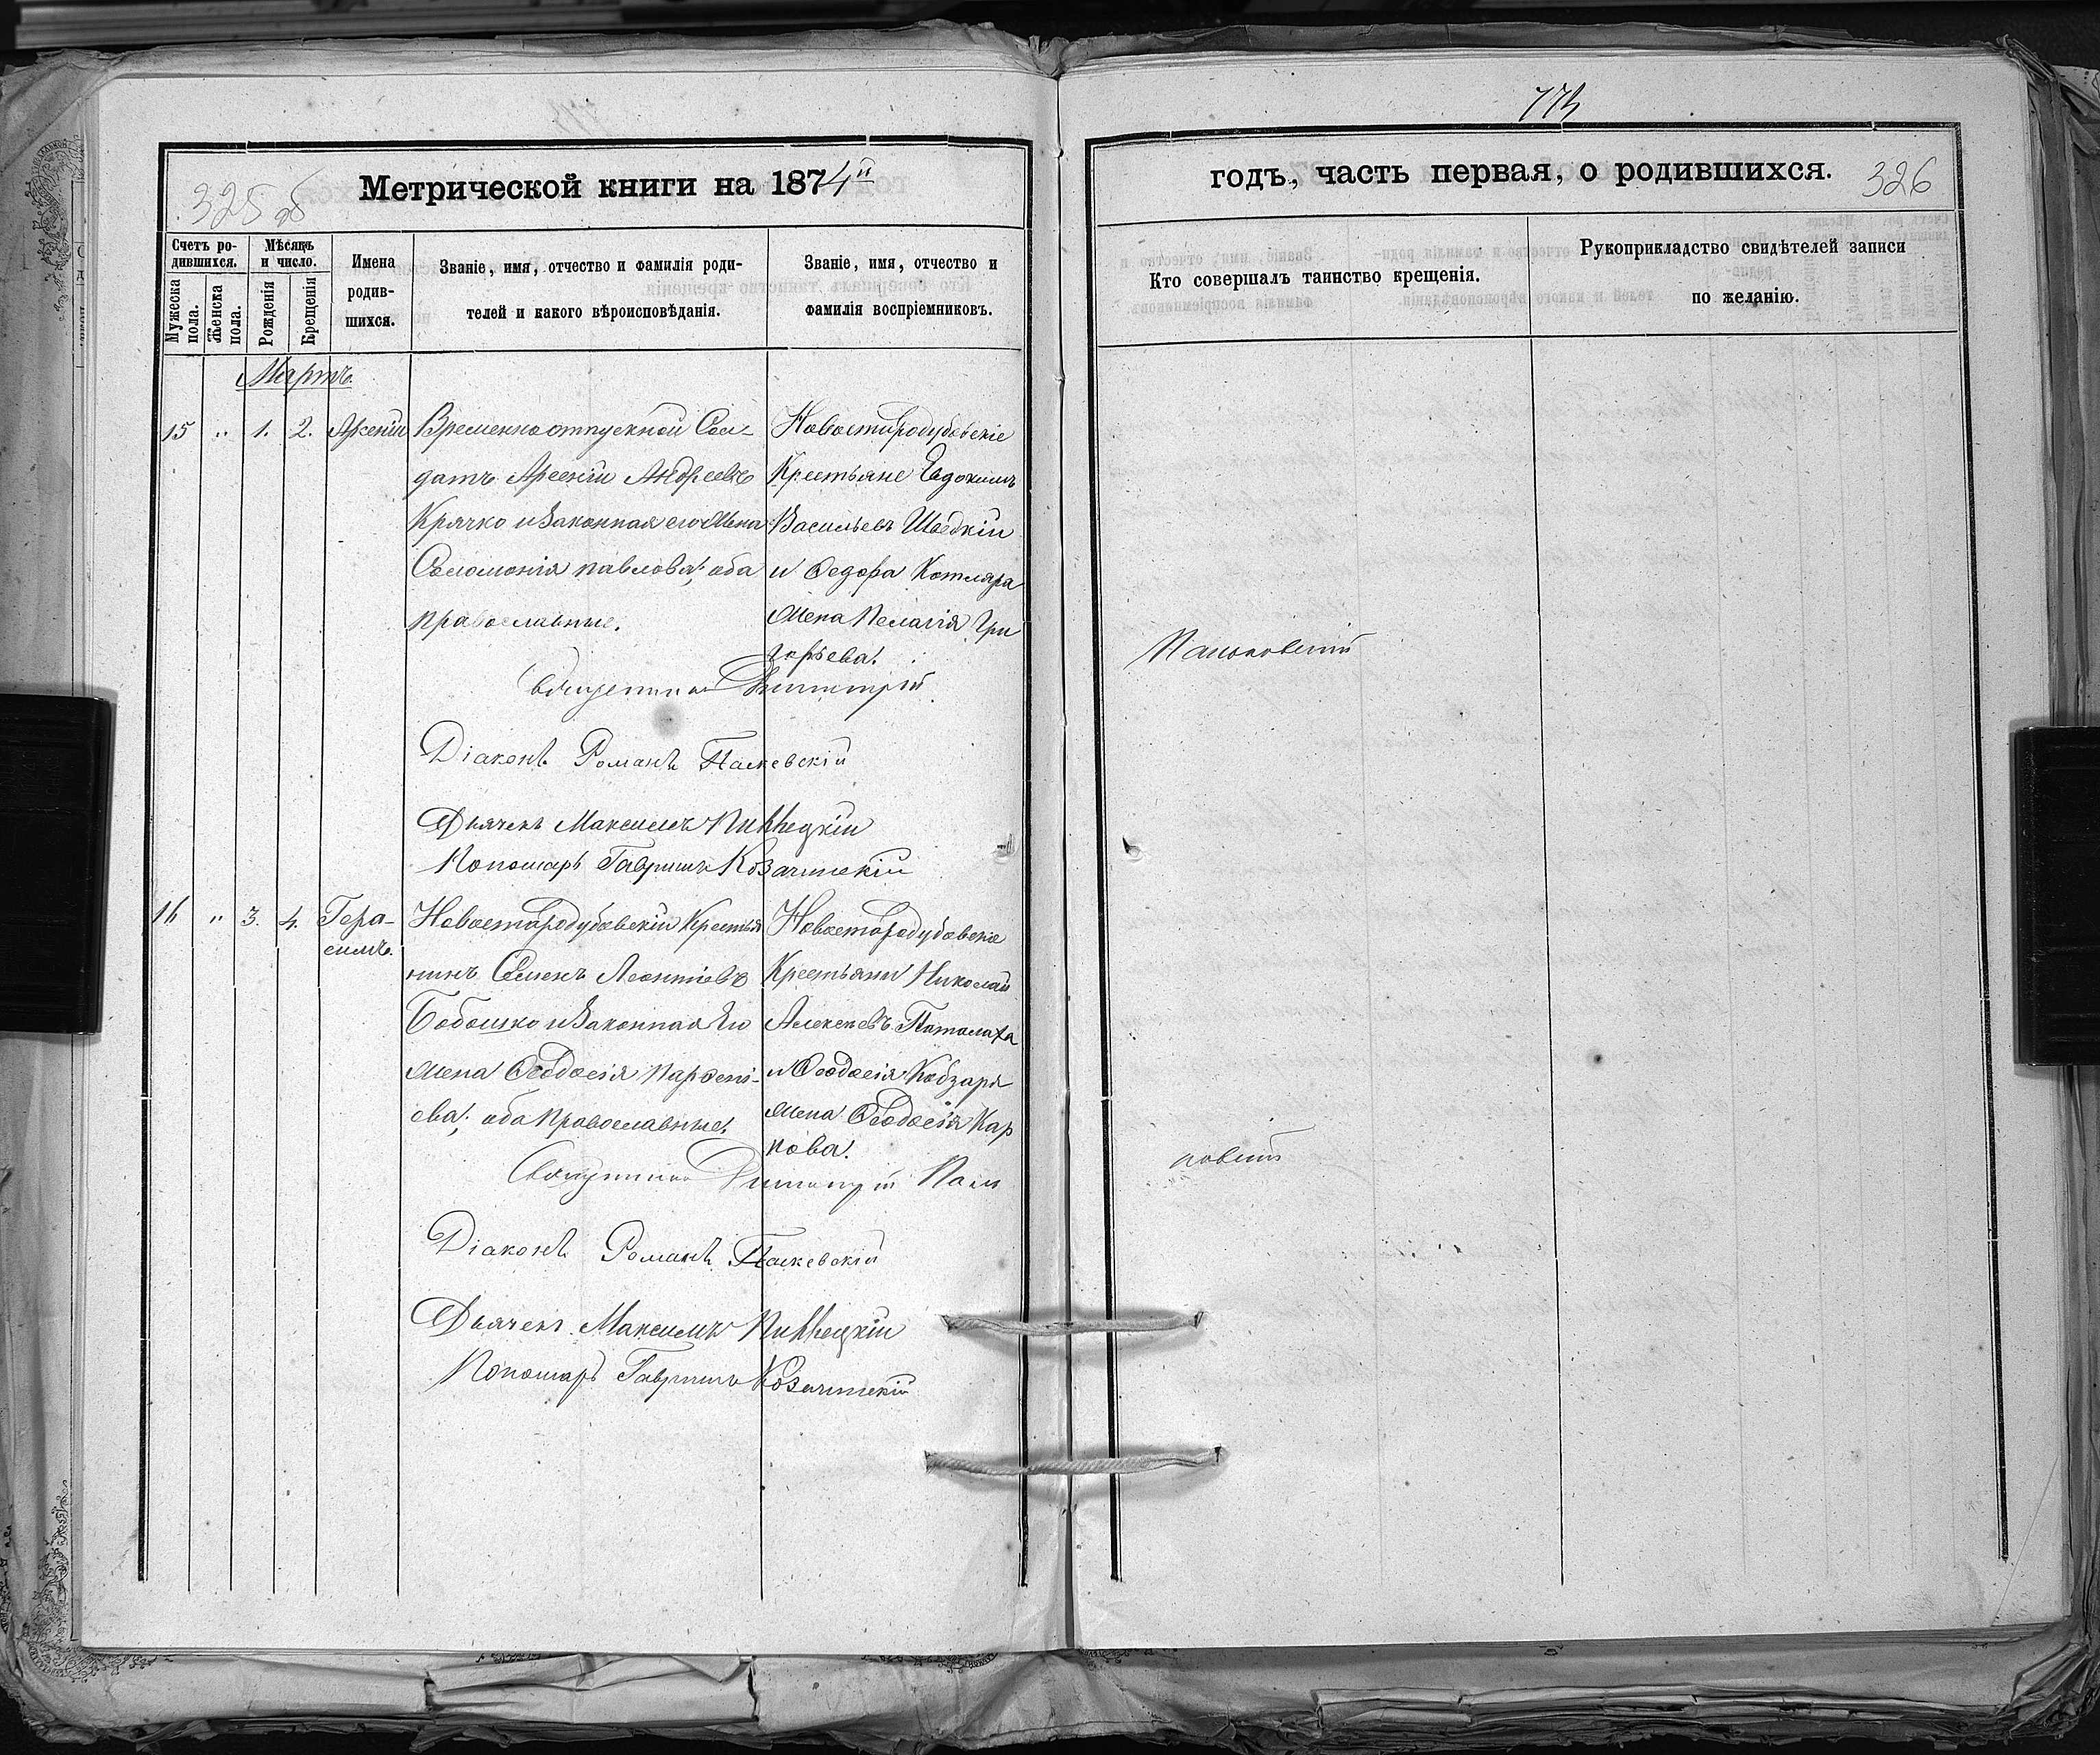 773
325 об
Метрической книги на 1874й
годъ, часть первая, о родившихся.
326
Счетъ ро-
дившихся.
Мѣсяцъ
и число.
Мужеска
пола.
Женска
пола.
Рожденія
Крещенія
Имена
родив-
шихся.
Званіе, имя, отчество и фамилія роди-
телей и какого вѣроисповѣданія.
Званіе, имя, отчество и
фамилія воспріемниковъ.
Кто совершалъ таинство крещенія.
Рукоприкладство свидѣтелей записи
по желанію.
Мартъ
15 " 1. 2.
Временно отпускной Сол-
датъ Арсеній Андреевъ
Крячко и Законная его Жена
Соломонія павлова; оба
православные.
Новостародубовскіе
Крестьяне Евдокимъ
Васильевъ Шведкій
и Ѳедора Котляра
Жена Пелагія Гри
горьева.
Священник Димитрій
Діаконъ Романъ Паскевскій
Дьячекъ Максимъ
Пономарь Гавриилъ
16 " 3. 4.
Гера-
симъ.
Новостародубовскій Крестья
нинъ Семенъ Леонтіевъ
Бобошко и Законная Его
Жена Ѳеодосія Парѳені-
ева; оба Православные.
Новостародубовскіе
Крестьяни Николай
Алексеевъ
и Ѳеодосія Кобзаря
Жена Ѳеодосія Кар
пова.
Священник Димитрій
Діаконъ Романъ Паскевскій
Дьячекъ Максимъ
Пономарь Гавриилъ